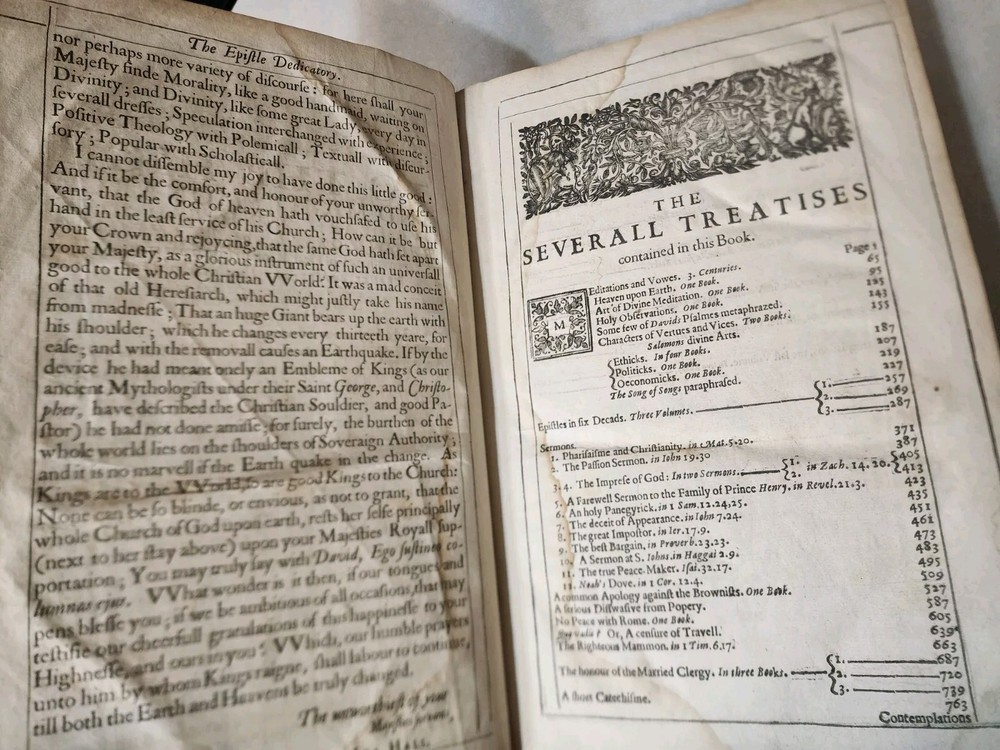 The Epiſtle Dedicatory.
nor perhaps more variety of diſcourſe: for here ſhall your
Majeſty finde Morality, like a good handmaid, waiting on
Divinity; and Divinity, like ſome great Lady, every day in
ſeverall dreſſes; Speculation interchanged with experience;
Poſitive Theology with Polemicall; Textuall with diſcur-
ſory; Popular with Scholaſticall.
I cannot diſſemble my joy to have done this little good:
And if it be the comfort, and honour of your unworthy ſer-
vant, that the God of heaven hath vouchſafed to uſe his
hand in the leaſt ſervice of his Church; How can it be but
your Crown and rejoycing, that the ſame God hath ſet apart
your Majeſty, as a glorious inſtrument of ſuch an univerſall
good to the whole Chriſtian VVorld? It was a mad conceit
of that old Hereſiarch, which might juſtly take his name
from madneſſe; That an huge Giant bears up the earth with
his ſhoulder; which he changes every thirteeth yeare, for
eaſe; and with the removall cauſes an Earthquake. If by the
device he had meant onely an Embleme of Kings (as our
ancient Mythologiſts under their Saint George, and Chriſto-
pher, have deſcribed the Chriſtian Souldier, and good Pa-
ſtor) he had not done amiſſe; for ſurely, the burthen of the
whole world lies on the ſhoulders of Soveraign Authority;
and it is no marvell if the Earth quake in the change. As
Kings are to the VVorld, ſo are good Kings to the Church:
None can be ſo blinde, or envious, as not to grant, that the
whole Church of God upon earth, reſts her ſelfe principally
(next to her ſtay above) upon your Majeſties Royall ſup-
portation; You may truly ſay with David, Ego ſuſtineo co-
lumnas ejus. VVhat wonder is it then, if our tongues and
pens bleſſe you; if we be ambitious of all occaſions, that may
teſtifie our cheerfull gratulations of this happineſſe to your
Highneſſe, and ours in you? VVhich, our humble prayers
unto him by whom Kings raigne, ſhall labour to continue,
till both the Earth and Heavens be truly changed.
The unworthieſt of your
Majeſties ſervants,
Hall.
THE
SEVERALL TREATISES
contained in this Book.
Page 1
MEditations and Vowes. 3. Centuries. 65
Heaven upon Earth. One Book. 95
Art of Divine Meditation. One Book. 125
Holy Obſervations. One Book. 143
Some few of Davids Pſalmes metaphrazed. 155
Characters of Vertues and Vices. Two Books.
Salomons divine Arts. 187
{Ethicks. In four Books. 207
Politicks. One Book. 219
Oeconomicks. One Book. 227
The Song of Songs paraphraſed.
Epiſtles in ſix Decads. Three Volumes. {1. 257
2. 269
3. 287
Sermons.
1. Phariſaiſme and Chriſtianity. in Mat. 5.20. 371
2. The Paſſion Sermon. in Iohn 19.30 387
3.4. The Impreſe of God: In two Sermons. {1. 2. in Zach. 14. 20. {405
413
5. A Farewell Sermon to the Family of Prince Henry. in Revel. 21.3. 423
6. An holy Panegyrick. in 1 Sam. 12.24,25. 435
7. The deceit of Appearance. in Iohn 7.24. 451
8. The great Impoſtor. in Ier. 17.9. 461
9. The beſt Bargain. in Proverb. 23.23. 473
10. A Sermon at S. Iohns. in Haggai 2.9. 483
11. The true Peace-Maker. Iſai. 32.17. 495
12. Noah's Dove. in 1 Cor. 12.4. 509
A common Apology againſt the Browniſts. One Book. 527
A ſerious Diſſwaſive from Popery. 587
No Peace with Rome. One Book. 605
Quo vadis? Or, A cenſure of Travell. 639
The Righteous Mammon. in 1 Tim. 6.17. 663
The honour of the Married Clergy. In three Books. {1. 687
2. 720
3. 739
A ſhort Catechiſme. 763
Contemplations